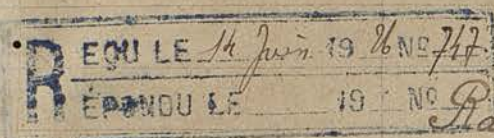 REÇU LE 14 Juin 1926 Nº 747.
RÉPONDU LE 19 Nº